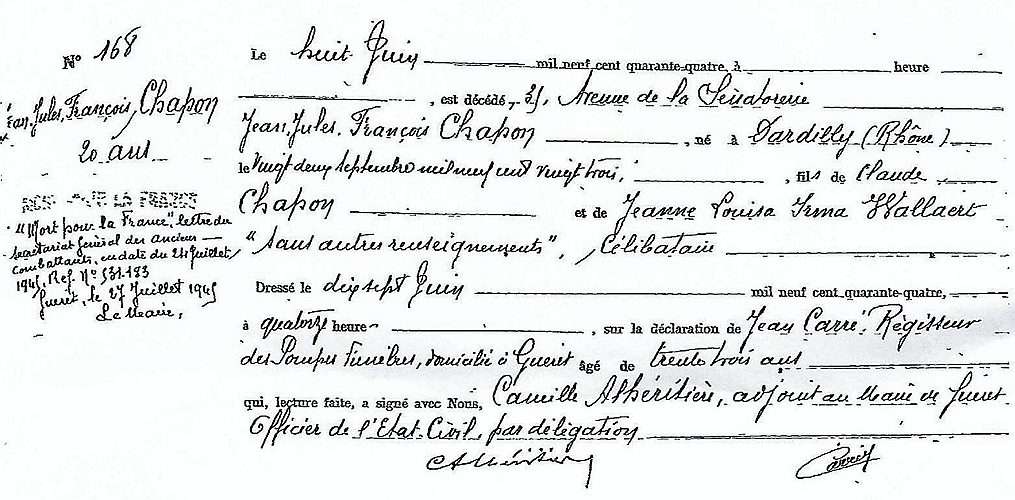 N° 168
Jean, Jules, François, Chapon
20 ans
MORT POUR LA FRANCE
"Mort pour la France", lettre du
Secrétariat Général des Anciens
Combattants, en date du 24 Juillet
1945, Ref. N° 531.183
Guéret, le 27 Juillet 1945
Le Maire,
Le huit Juin mil neuf cent quarante-quatre, à heure
, est décédé, 31, Avenue de la Sénatorerie
Jean, Jules, François Chapon , né à Dardilly (Rhône)
le vingt deux septembre mil neuf cent vingt trois, , fils de Claude
Chapon et de Jeanne Louisa Irma Wallaert
"sans autres renseignements", Célibataire
Dressé le dix sept Juin mil neuf cent quarante-quatre,
à quatorze heure , sur la déclaration de Jean Carré, Régisseur
des Pompes Funèbres, domicilié à Guéret âgé de trente trois ans
qui, lecture faite, a signé avec Nous, Camille Alhéritière, adjoint au Maire de Guéret
Officier de l'Etat-Civil, par délégation